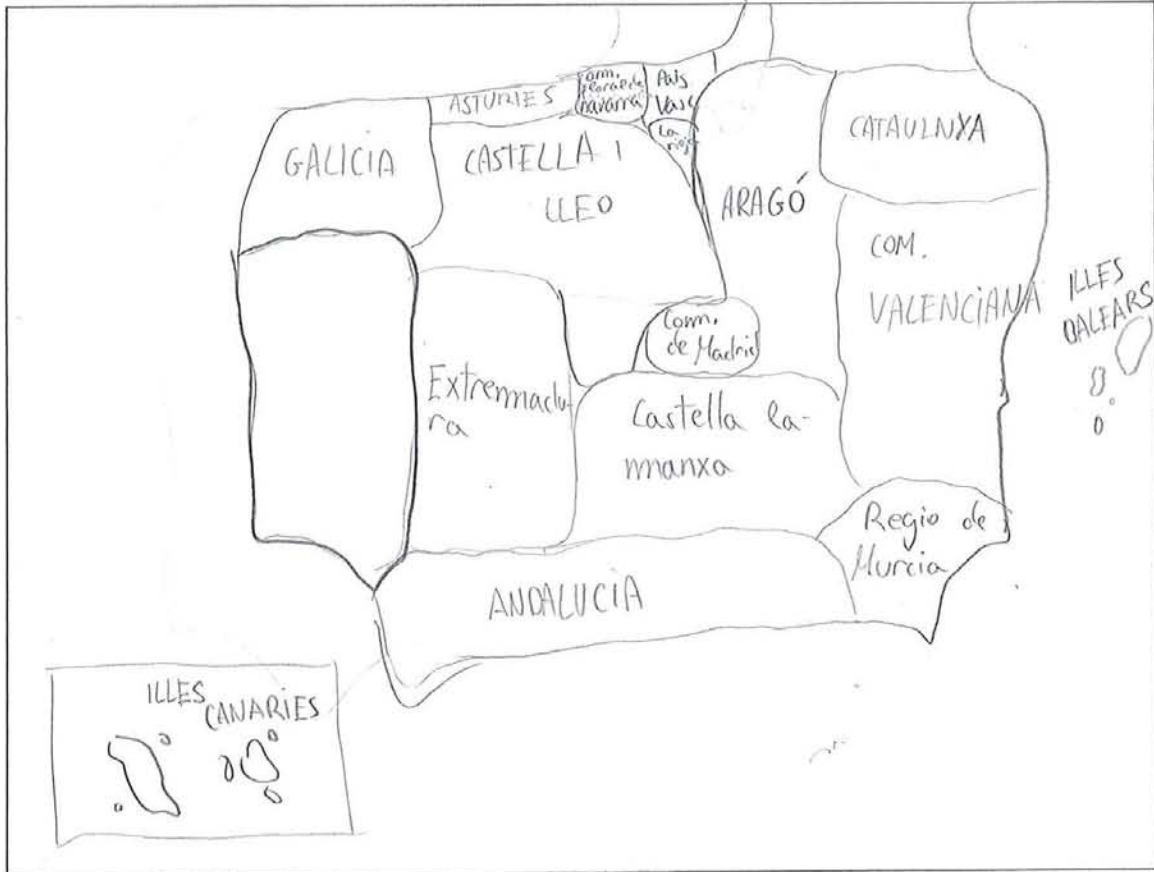 ASTURIES
Com.
navarra
País
Vasc
La
rioja
GALICIA
CASTELLA I
LLEO
ARAGÓ
CATAULNXA
COM.
VALENCIANA
ILLES
BALEARS
Com.
de Madrid
Extremadu-
ra
Castella la-
manxa
Regio de
Murcia
ANDALUCIA
ILLES
CANARIES